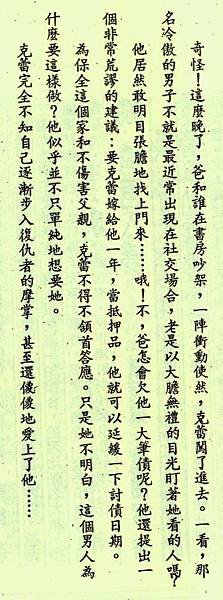 奇怪!這麼晚了,爸和誰在書房吵架,一陣衝動使然,克蕾闖了進去。一看,那
名冷傲的男子不就是最近常出現在社交場合,老是以大膽無禮的目光盯著她看的人嗎?
他居然敢明目張膽地找上門來……哦!不,爸怎會欠他一大筆債呢?他還提出一
個非常荒謬的建議:要克蕾嫁給他一年,當抵押品,他就可以延緩一下討債日期。
為保全這個家和不傷害父親,克蕾不得不頷首答應。只是她不明白,這個男人為
什麼要這樣做?他似乎並不只單純地想要她。
克蕾完全不知自己逐漸步入復仇者的摩掌,甚至還傻傻地愛上了他……